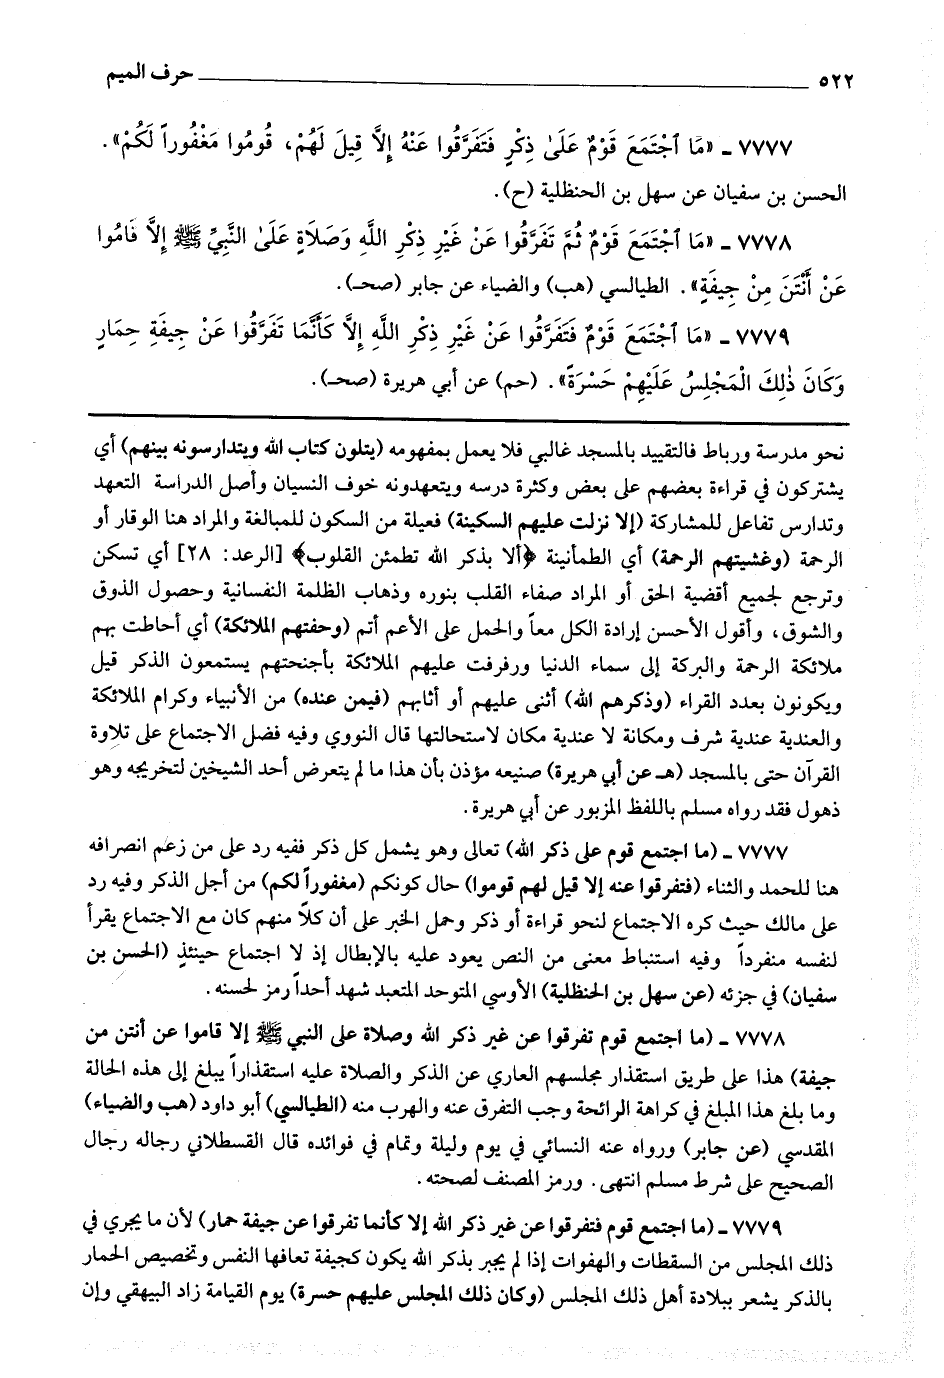 ٥٢٢ حرف الميم
٧٧٧٧ ـ «مَا ٱجْتَمَعَ قَوْمٌ عَلَىٰ ذِكْرٍ فَتَفَرَّقُوا عَنْهُ إِلَّا قِيلَ لَهُمْ، قُومُوا مَغْفُوراً لَكُمْ».
الحسن بن سفيان عن سهل بن الحنظلية (ح).
٧٧٧٨ ـ «مَا ٱجْتَمَعَ قَوْمٌ ثُمَّ تَفَرَّقُوا عَنْ غَيْرِ ذِكْرِ اللَّهِ وَصَلَاةٍ عَلَىٰ النَّبِيِّ ﷺ إِلَّا قَامُوا
عَنْ أَنْتَنَ مِنْ جِيفَةٍ». الطيالسي (هب) والضياء عن جابر (صحـ).
٧٧٧٩ ـ «مَا ٱجْتَمَعَ قَوْمٌ فَتَفَرَّقُوا عَنْ غَيْرِ ذِكْرِ اللَّهِ إِلَّا كَأَنَّمَا تَفَرَّقُوا عَنْ جِيفَةِ حِمَارٍ
وَكَانَ ذٰلِكَ الْمَجْلِسُ عَلَيْهِمْ حَسْرَةً». (حم) عن أبي هريرة (صحـ).
نحو مدرسة ورباط فالتقييد بالمسجد غالبي فلا يعمل بمفهومه (يتلون كتاب الله ويتدارسونه بينهم) أي
يشتركون في قراءة بعضهم على بعض وكثرة درسه ويتعهدونه خوف النسيان وأصل الدراسة التعهد
وتدارس تفاعل للمشاركة (إلا نزلت عليهم السكينة) فعيلة من السكون للمبالغة والمراد هنا الوقار أو
الرحمة (وغشيتهم الرحمة) أي الطمأنينة ﴿ألا بذكر الله تطمئن القلوب﴾ [الرعد: ٢٨] أي تسكن
وترجع لجميع أقضية الحق أو المراد صفاء القلب بنوره وذهاب الظلمة النفسانية وحصول الذوق
والشوق، وأقول الأحسن إرادة الكل معاً والحمل على الأعم أتم (وحفتهم الملائكة) أي أحاطت بهم
ملائكة الرحمة والبركة إلى سماء الدنيا ورفرفت عليهم الملائكة بأجنحتهم يستمعون الذكر قيل
ويكونون بعدد القراء (وذكرهم الله) أثنى عليهم أو أثابهم (فيمن عنده) من الأنبياء وكرام الملائكة
والعندية عندية شرف ومكانة لا عندية مكان لاستحالتها قال النووي وفيه فضل الاجتماع على تلاوة
القرآن حتى بالمسجد (هـ عن أبي هريرة) صنيعه مؤذن بأن هذا ما لم يتعرض أحد الشيخين لتخريجه وهو
ذهول فقد رواه مسلم باللفظ المزبور عن أبي هريرة.
٧٧٧٧ ـ (ما اجتمع قوم على ذكر الله) تعالى وهو يشمل كل ذكر ففيه رد على من زعم انصرافه
هنا للحمد والثناء (فتفرقوا عنه إلا قيل لهم قوموا) حال كونكم (مغفوراً لكم) من أجل الذكر وفيه رد
على مالك حيث كره الاجتماع لنحو قراءة أو ذكر وحمل الخبر على أن كلاً منهم كان مع الاجتماع يقرأ
لنفسه منفرداً وفيه استنباط معنى من النص يعود عليه بالإبطال إذ لا اجتماع حينئذٍ (الحسن بن
سفيان) في جزئه (عن سهل بن الحنظلية) الأوسي المتوحد المتعبد شهد أحداً رمز لحسنه.
٧٧٧٨ ـ (ما اجتمع قوم تفرقوا عن غير ذكر الله وصلاة على النبي ﷺ إلا قاموا عن أنتن من
جيفة) هذا على طريق استقذار مجلسهم العاري عن الذكر والصلاة عليه استقذاراً يبلغ إلى هذه الحالة
وما بلغ هذا المبلغ في كراهة الرائحة وجب التفرق عنه والهرب منه (الطيالسي) أبو داود (هب والضياء)
المقدسي (عن جابر) ورواه عنه النسائي في يوم وليلة وتمام في فوائده قال القسطلاني رجاله رجال
الصحيح على شرط مسلم انتهى. ورمز المصنف لصحته.
٧٧٧٩ ـ (ما اجتمع قوم فتفرقوا عن غير ذكر الله إلا كأنما تفرقوا عن جيفة حمار) لأن ما يجري في
ذلك المجلس من السقطات والهفوات إذا لم يجبر بذكر الله يكون كجيفة تعافها النفس وتخصيص الحمار
بالذكر يشعر ببلادة أهل ذلك المجلس (وكان ذلك المجلس عليهم حسرة) يوم القيامة زاد البيهقي وإن